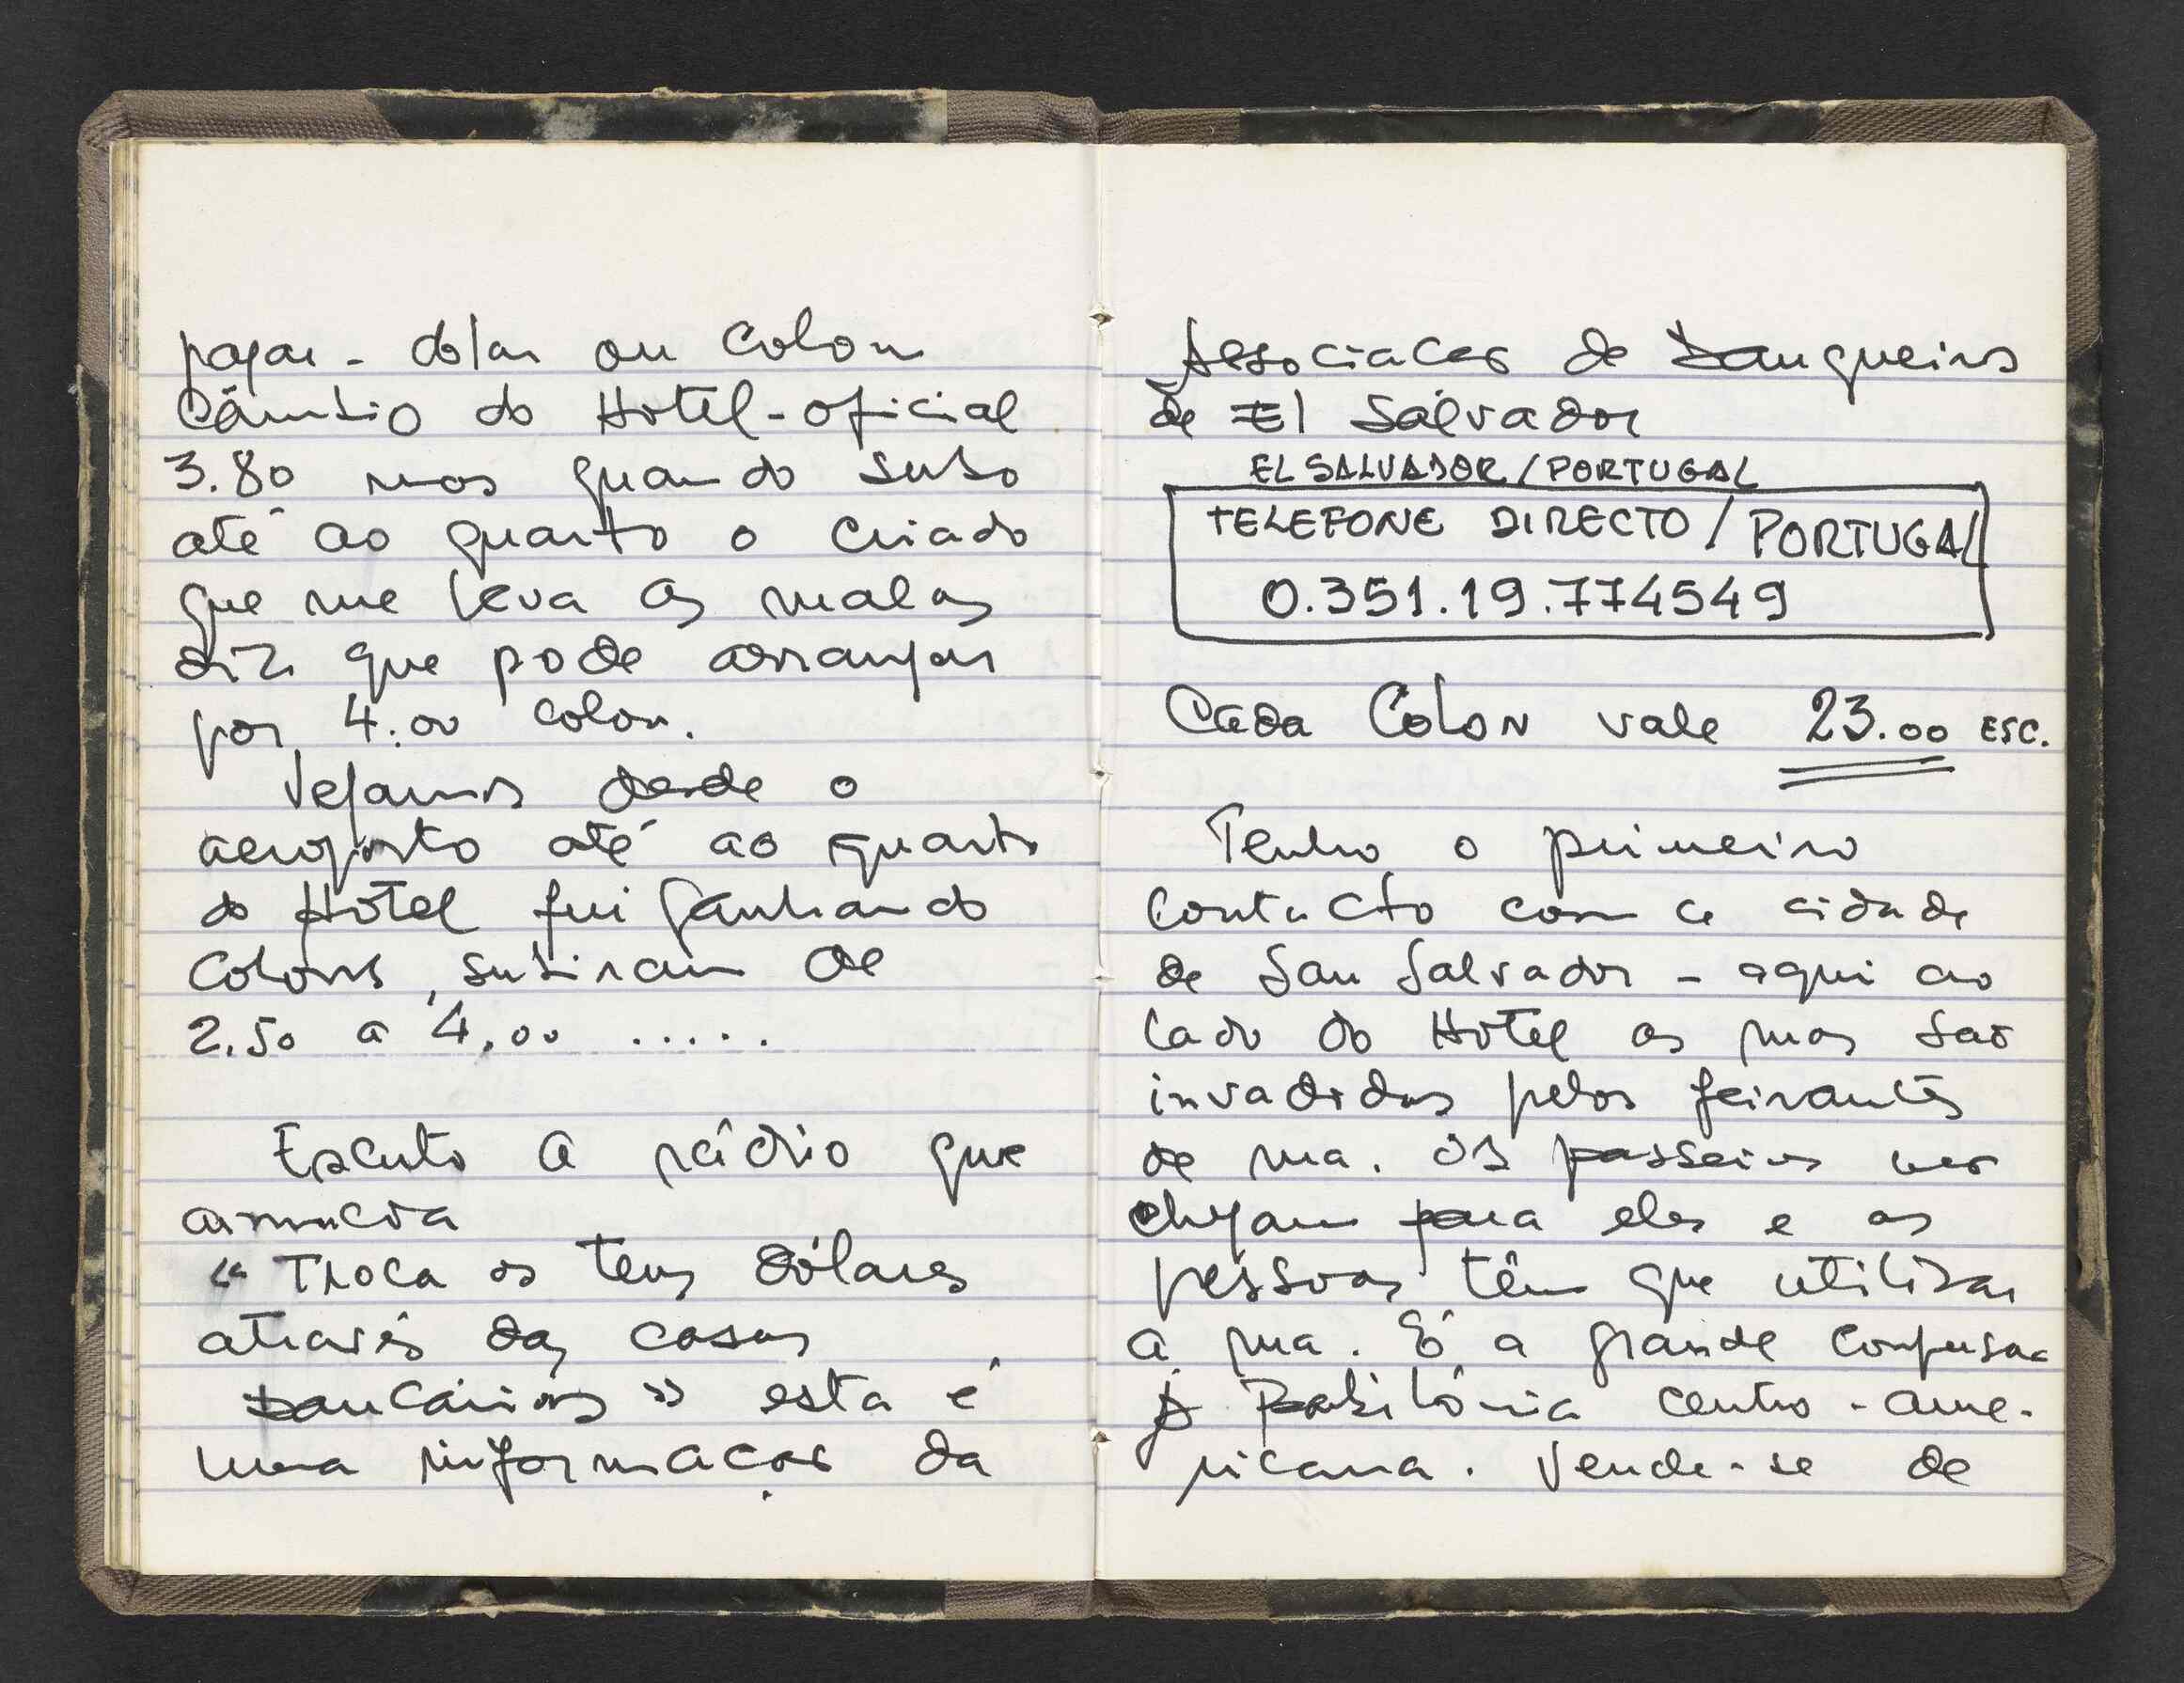 pagar - dolar ou Colon
Câmbio do Hotel - oficial
3.80 mas quando subo
até ao quarto o criado
que me leva as malas
diz que pode arranjar
por 4.00 colon.
Vejamos desde o
aeroporto até ao quarto
do Hotel fui ganhando
Colons, subiram de
2.50 a 4.00 .....
Escuto a rádio que
anuncia
"Troca os teus dólares
através das casas
bancárias" esta é
uma informação da
Associacao de Banqueiros
de El Salvador
EL SALVADOR / PORTUGAL
TELEFONE DIRECTO / PORTUGAL
0.351.19.774549
Cada Colon vale 23.00 ESC.
Tenho o primeiro
contacto com a cidade
de San Salvador - aqui ao
lado do Hotel as ruas são
invadidas pelos feirantes
de rua. Os passeios nao
chegam para eles e as
pessoas têm que utilizar
a rua. É a grande confusao
Babilónia centro-ame-
ricana. Vende-se de